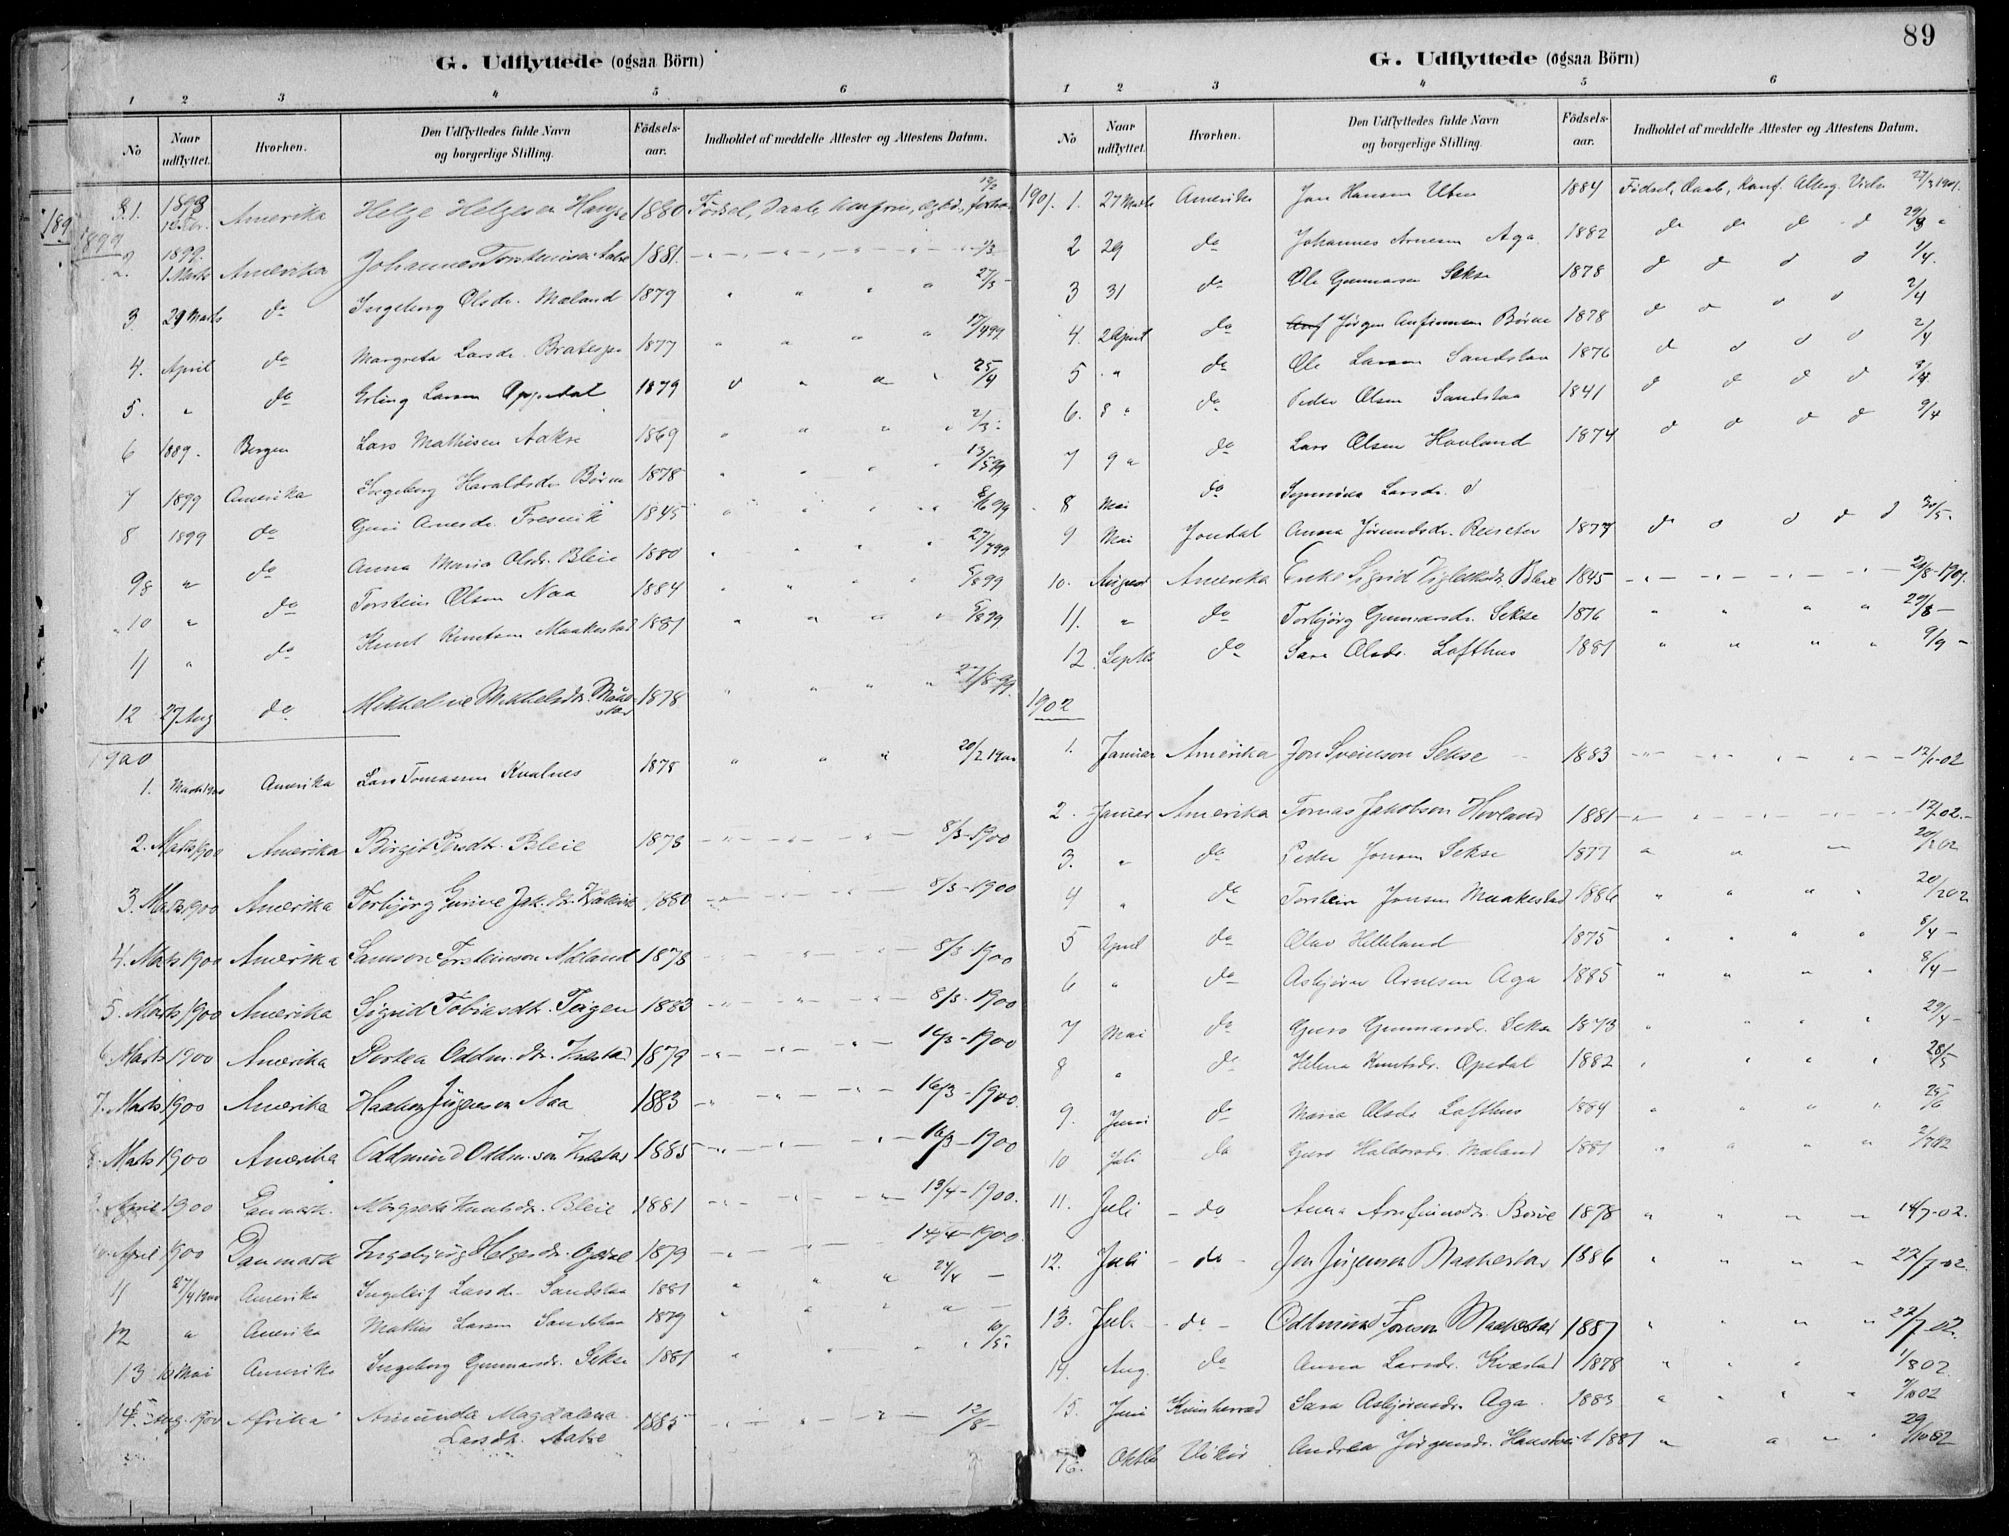 G. Udflyttede (ogsaa Börn)
1 2 3 4 5 6
No Naar udflyttet. Hvorhen. Den Udflyttedes fulde Navn og borgerlige Stilling. Födsels-aar. Indholdet af meddelte Attester og Attestens Datum.
189
1899
1. 1898 Amerika Helge Helgesen 1880 Fødsel, Daab,
2. 1899 1 Marts Amerika Johannes Torsteinsen 1881 1/3
3 29 Marts do Ingeborg Olsdr. Mæland 1879 " " " " 27/3
4. April do Margreta Larsdr. 1877 " " " "
5. " do Erling Larsen Oppedal 1879 25/4
6 1889. Bergen Lars Mathisen Aakre 1869 " " " "
7 1899 Amerika Ingeborg Haraldsdr. Børve 1878 " " " " 13/5 99
8 1899 do Guri Arnesdr. Fresvik 1845 " " " " 8/6 99
9 " do Anna Maria Olsdr. Bleie 1880 " " " " 27/7 99
10 " do Torstein Olsen Naa 1884 " " " " 5/8 99
11 " do Knut Knutsen Maakestad 1881 " " " " 5/8 99
12 27 Aug do Mikkeline Mikkelsdtr. 1878 " " " " 27/8-99.
1900
1. Marts 1900 Amerika Lars Tomassen Kvalnes 1878 " " " 20/2 1900
2. Marts 1900 Amerika Birgit Persdtr. Bleie 1878 8/3-1900
3. Marts 1900 Amerika Torbjørg Gurine Jak.dtr. 1880 8/3-1900
4. Marts 1900 Amerika Samson Torsteinson Mæland 1878 8/3-1900
5. Marts 1900 Amerika Sigrid Tobiasdtr. Teigen 1883 8/3-1900
6. Marts 1900 Amerika Oddm.dtr. 1879 16/3-1900
7. Marts 1900 Amerika Haakon Jørgenson Naa 1883 16/3-1900
8. Marts 1900 Amerika Oddmund Oddm.son 1885 16/3-1900
April 1900 Danmark. Margreta Knutsdtr. Bleie 1881 13/4-1900.
April 1900 Danmark Ingebjørg Helgesdtr. 1879 14/4-1900.
11 27/4 1900 Amerika Larsdr. Sandstaa 1881 " " " 24/4 —
12 " Amerika Mathis Larsen Sandstaa 1879 " " " "
13 10 Mai Amerika Ingeborg Gunnarsdr. Sekse 1881 " " " 10/5.
14. Aug. 1900 Afrika Amunda Magdalena 1885 12/8-
Larsdtr. Aakre
89
G. Udflyttede (ogsaa Börn)
1 2 3 4 5 6
No Naar udflyttet. Hvorhen. Den Udflyttedes fulde Navn og borgerlige Stilling. Födsels-aar. Indholdet af meddelte Attester og Attestens Datum.
1901. 1. 27 Marts Amerika Jon Hansen Utne 1884 Fødsel, Daab, Konf. Alterg. 27/3 1901.
2 29 do Johannes Arnesen Aga. 1882 do do do d 29/3 "
3 31 do Ole Gunnarsen Sekse 1878 d d d d 1/4.
4. 2 April do Jørgen Anfinnsen Børve 1878 d d d d 2/4
5 " do Ole Larsen Sandstaa 1876 d d d d 2/4
6. 8 " do Peder Olsen Sandstaa 1841 d d d d 8/4
7 9 " do Lars Olsen Hovland 1874 d d d d 9/4
8 Mai do Larsdr. d
9 Mai Jondal Anna Jørundsdr. Reiseter 1877 d d d d d 30/5.
10. August Amerika Enke Sigrid Viglektsdtr. Bleie 1845 20/8-1901.
11. " do Torbjørg Gunnarsdr. Sekse 1876 " " " " 29/8 -
12 Septbr do Sara Olsdr. Lofthus 1881 " " " " 9/9 -
1902
1. Januar Amerika Jon Sveinson Sekse 1883 12/1-02
2. Januar Amerika Tomas Jakobson Hovland 1881 12/1 02.
3. " do Peder Jonsen Sekse 1877 " " " 20/2 02
4 " do Torstein Jonsen Maakestad 1886 " " " " 20/2 02
5 April do Olav Helleland 1875 " " " " 8/4 -
6 " do Asbjørn Arnesen Aga 1885 " " " " 8/4 -
7 Mai do Guro Gunnarsdr. Sekse 1873 " " " " 29/4 -
8 " do Helena Knutsdr. Opedal 1882 " " " " 28/5
9. Juni do Maria Olsdr Lofthus 1884 " " " " 25/6
10 Juli do Guro Haldorsdr. Mæland 1881 " " " " 2/7 02
11. Juli - do Anna Arnfinnsdtr. Børve 1878 " " " " 14/7-02.
12. Juli - do - Jon Jørgensen Maakestad 1886 " " " " 22/7-02.
13. Juli - do - Oddmund Jonson Maakestad 1887 " " " " 22/7-02.
14. Aug. do Anna Larsdr. Kvæstad 1878 " " " " 1/8 02
15. Juni Kvinherred Sara Asbjørnsdr. Aga 1883 " " " "
16. Oktbr Vikør Andrea Jørgensdr. 1881 " " " " 29/10 02